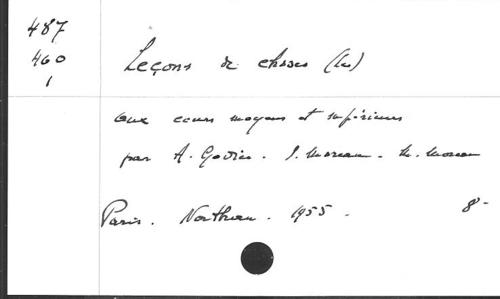 487
460
1
Leçons de choses (les)
aux cours moyens et supérieurs
par A. Godier. S. Moreau. M. Moreau
Paris. Nathan. 1955. 8-